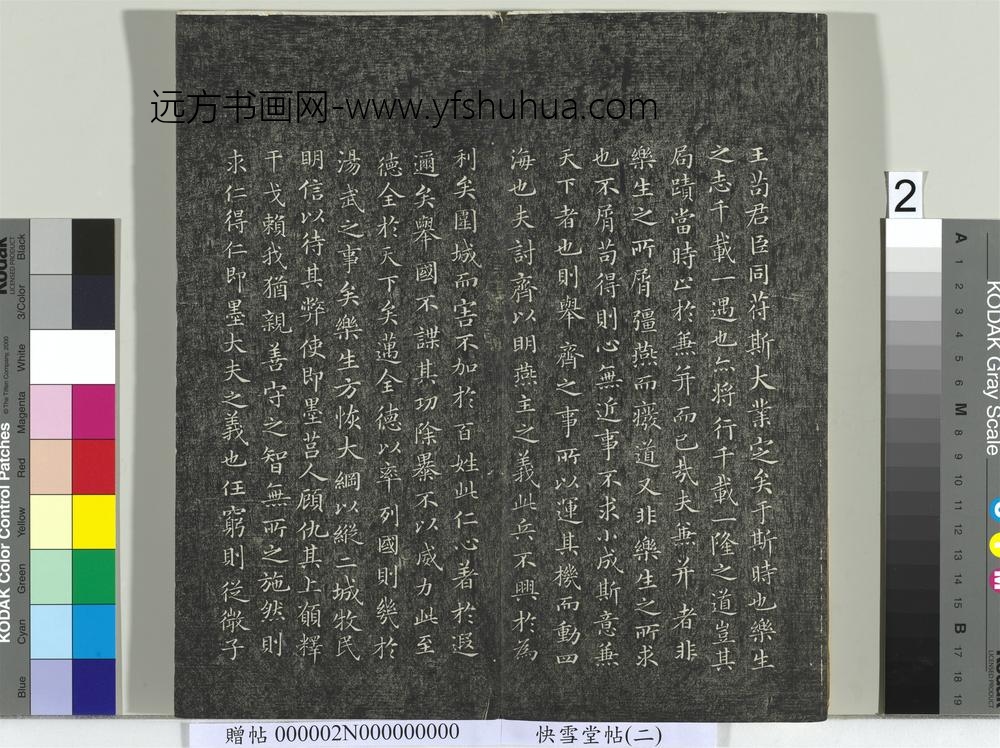 远方书画网-www.yfshuhua.com
王苟君臣同苻斯大業定矣于斯時也樂生
之志千載一遇也亦將行千載一隆之道豈其
局蹟當時止於兼并而已哉夫兼并者非
樂生之所屑彊燕而癈道又非樂生之所求
也不屑苟得則心無近事不求小成斯意兼
天下者也則舉齊之事所以運其機而動四
海也夫討齊以明燕主之義此兵不興於為
利矣圍城而害不加於百姓此仁心著於遐
邇矣舉國不謀其功除暴不以威力此至
德全於天下矣邁全德以率列國則幾於
湯武之事矣樂生方恢大綱以縱二城牧民
明信以待其弊使即墨莒人顧仇其上願釋
干戈賴我猶親善守之智無所之施然則
求仁得仁即墨大夫之義也任窮則從微子
2
贈帖 000002N000000000
快雪堂帖(二)
KODAK Color Control Patches
© The Tiffen Company, 2000
Kodak
LICENSED PRODUCT
Black
3/Color
White
Magenta
Red
Yellow
Green
Cyan
Blue
KODAK Gray Scale
A 1 2 3 4 5 6 M 8 9 10 11 12 13 14 15 B 17 18 19
C
Y
M
Kodak
LICENSED PRODUCT